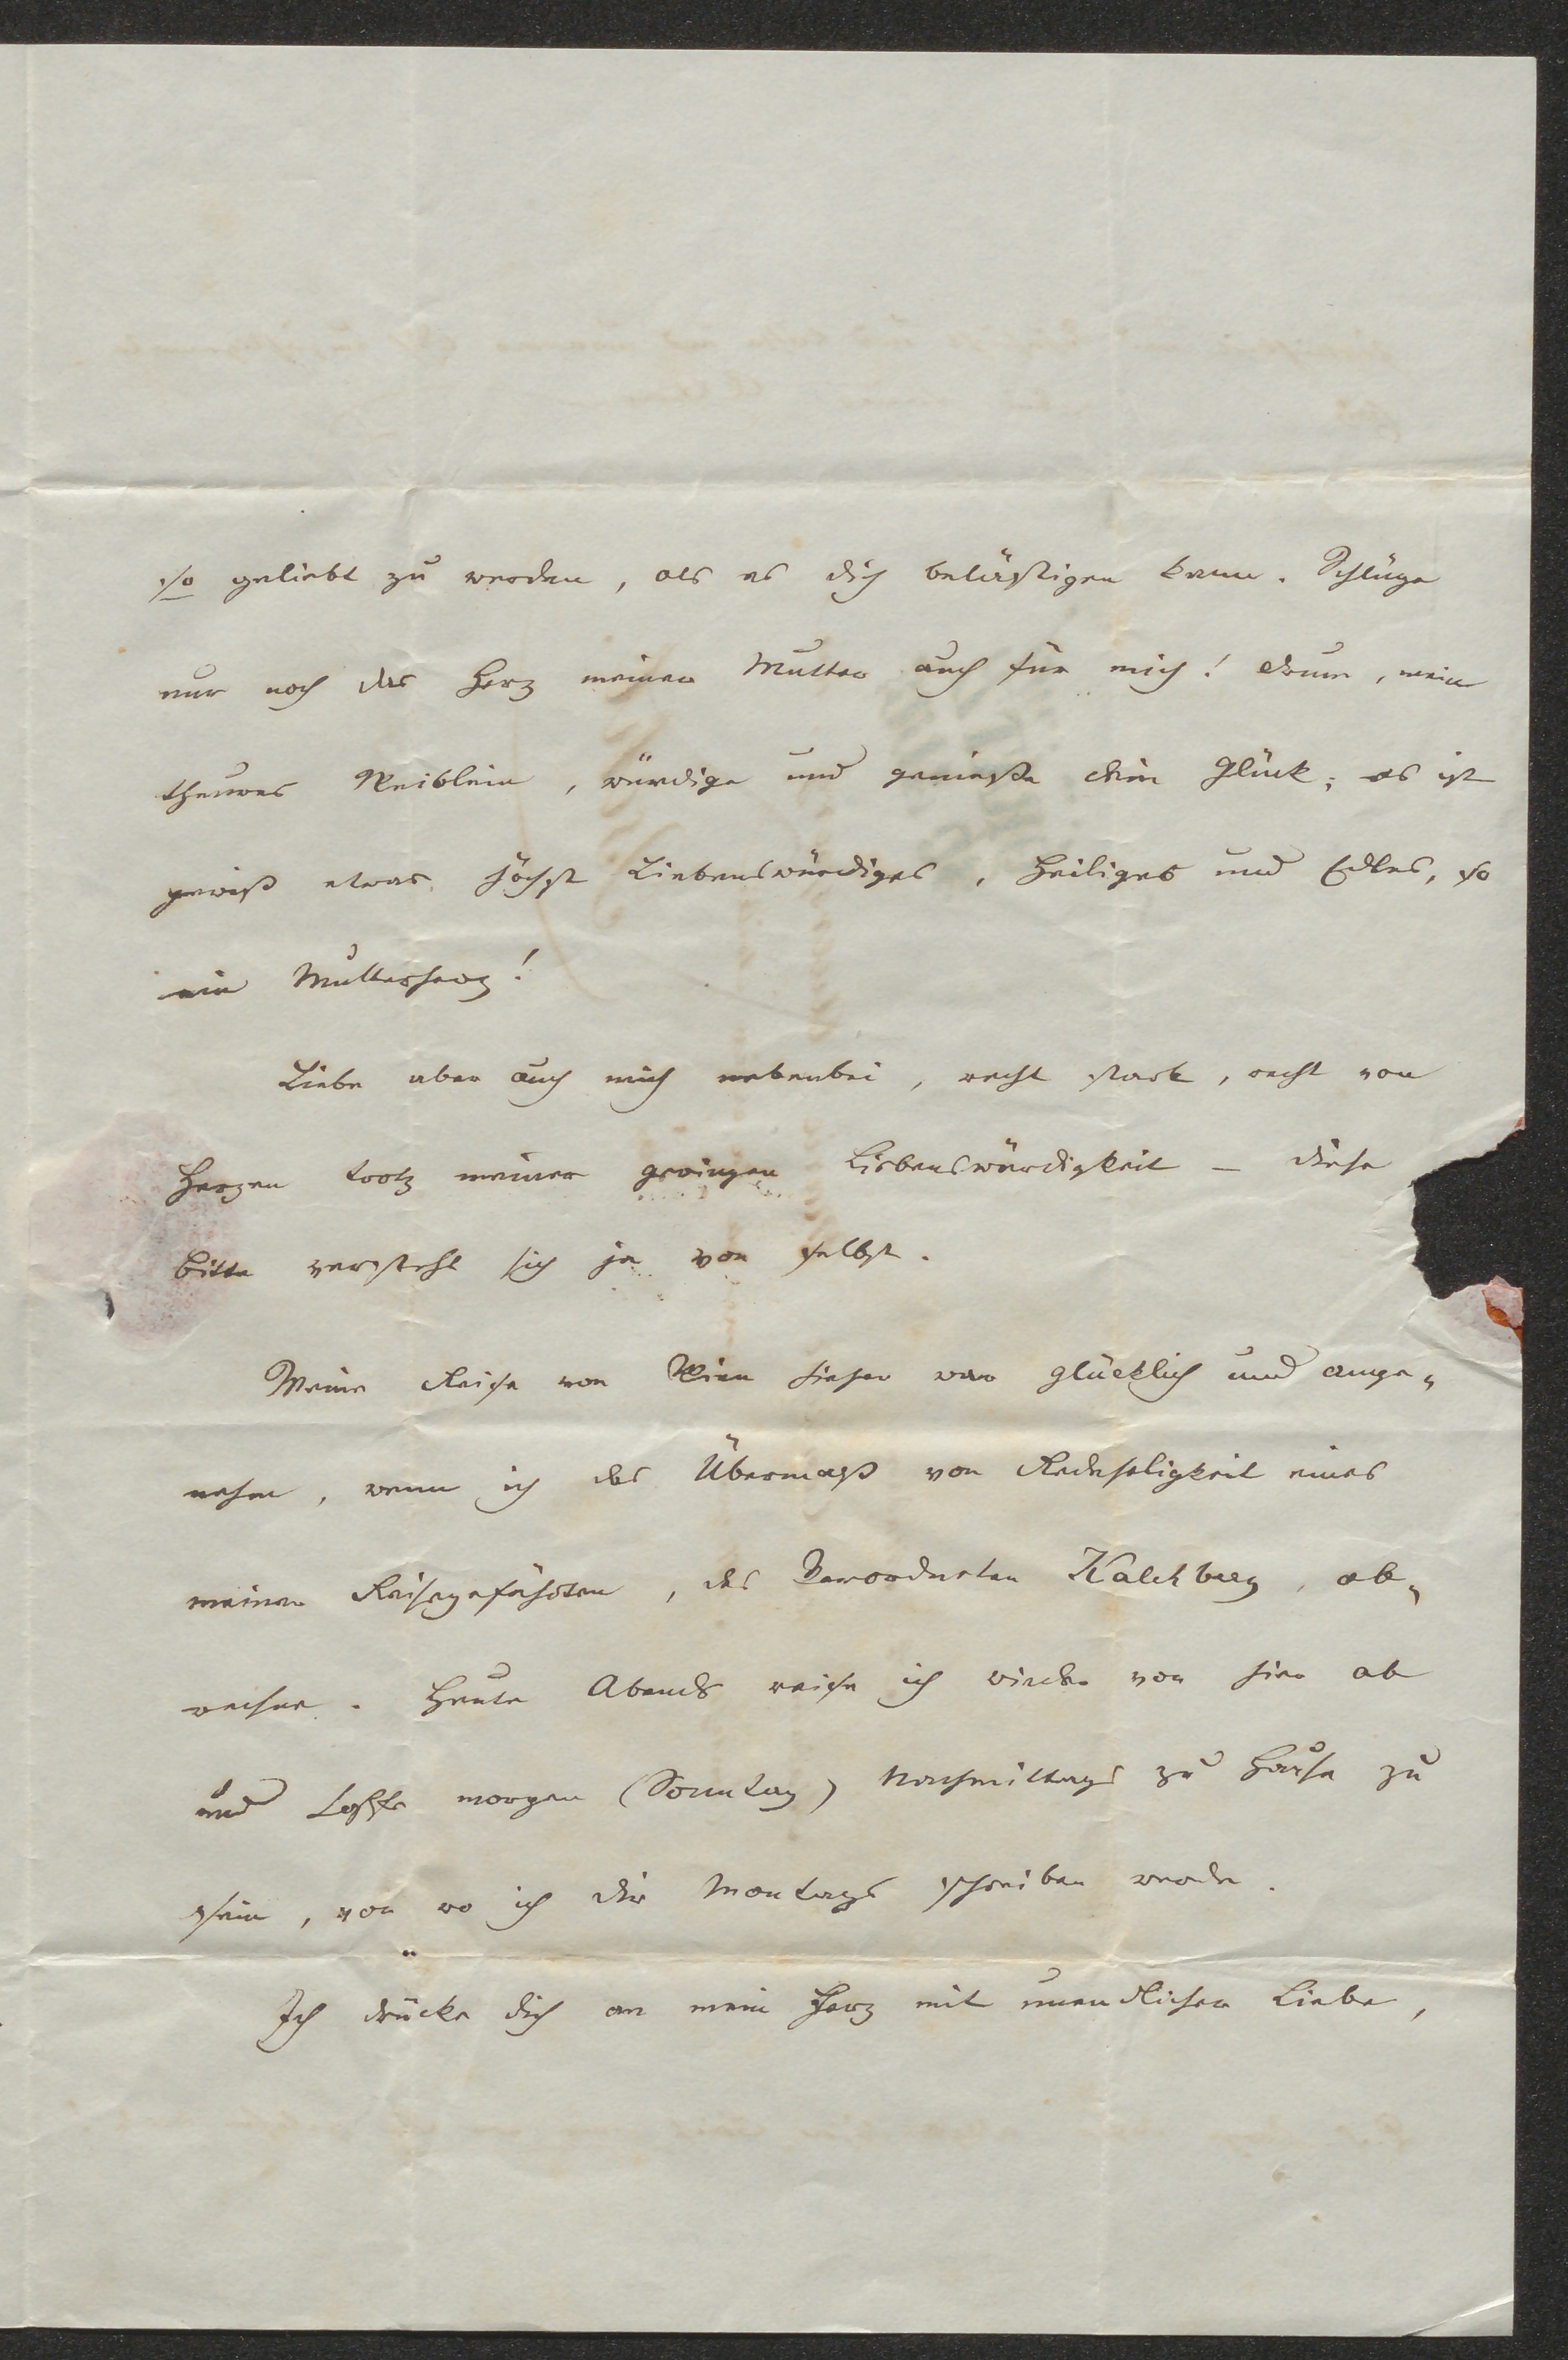 so geliebt zu werden, als es dich belästigen kann. Schlüge
nur noch das Herz meiner Mutter auch für mich! drum, mein
theures Weiblein, würdige und genieße dein Glück; es ist
gewiß etwas höchst Liebenswürdiges, Heiliges und Edles, so
ein Mutterherz!
Liebe aber auch mich nebenbei, recht stark, recht von
Herzen trotz meiner geringen Liebenswürdigkeit – diese
Bitte versteht sich ja von selbst.
Meine Reise von Wien hieher war glücklich und ange„
nehm, wenn ich das Übermaß von Redseligkeit eines
meiner Reisegefährten, des Verordneten Kalchberg, ab„
rechne. Heute Abends reise ich wieder von hier ab
und hoffe morgen (Sonntag) Nachmittags zu Hause zu
sein, von wo ich dir Montags schreiben werde.
Ich drücke dich an mein Herz mit unendlicher Liebe,